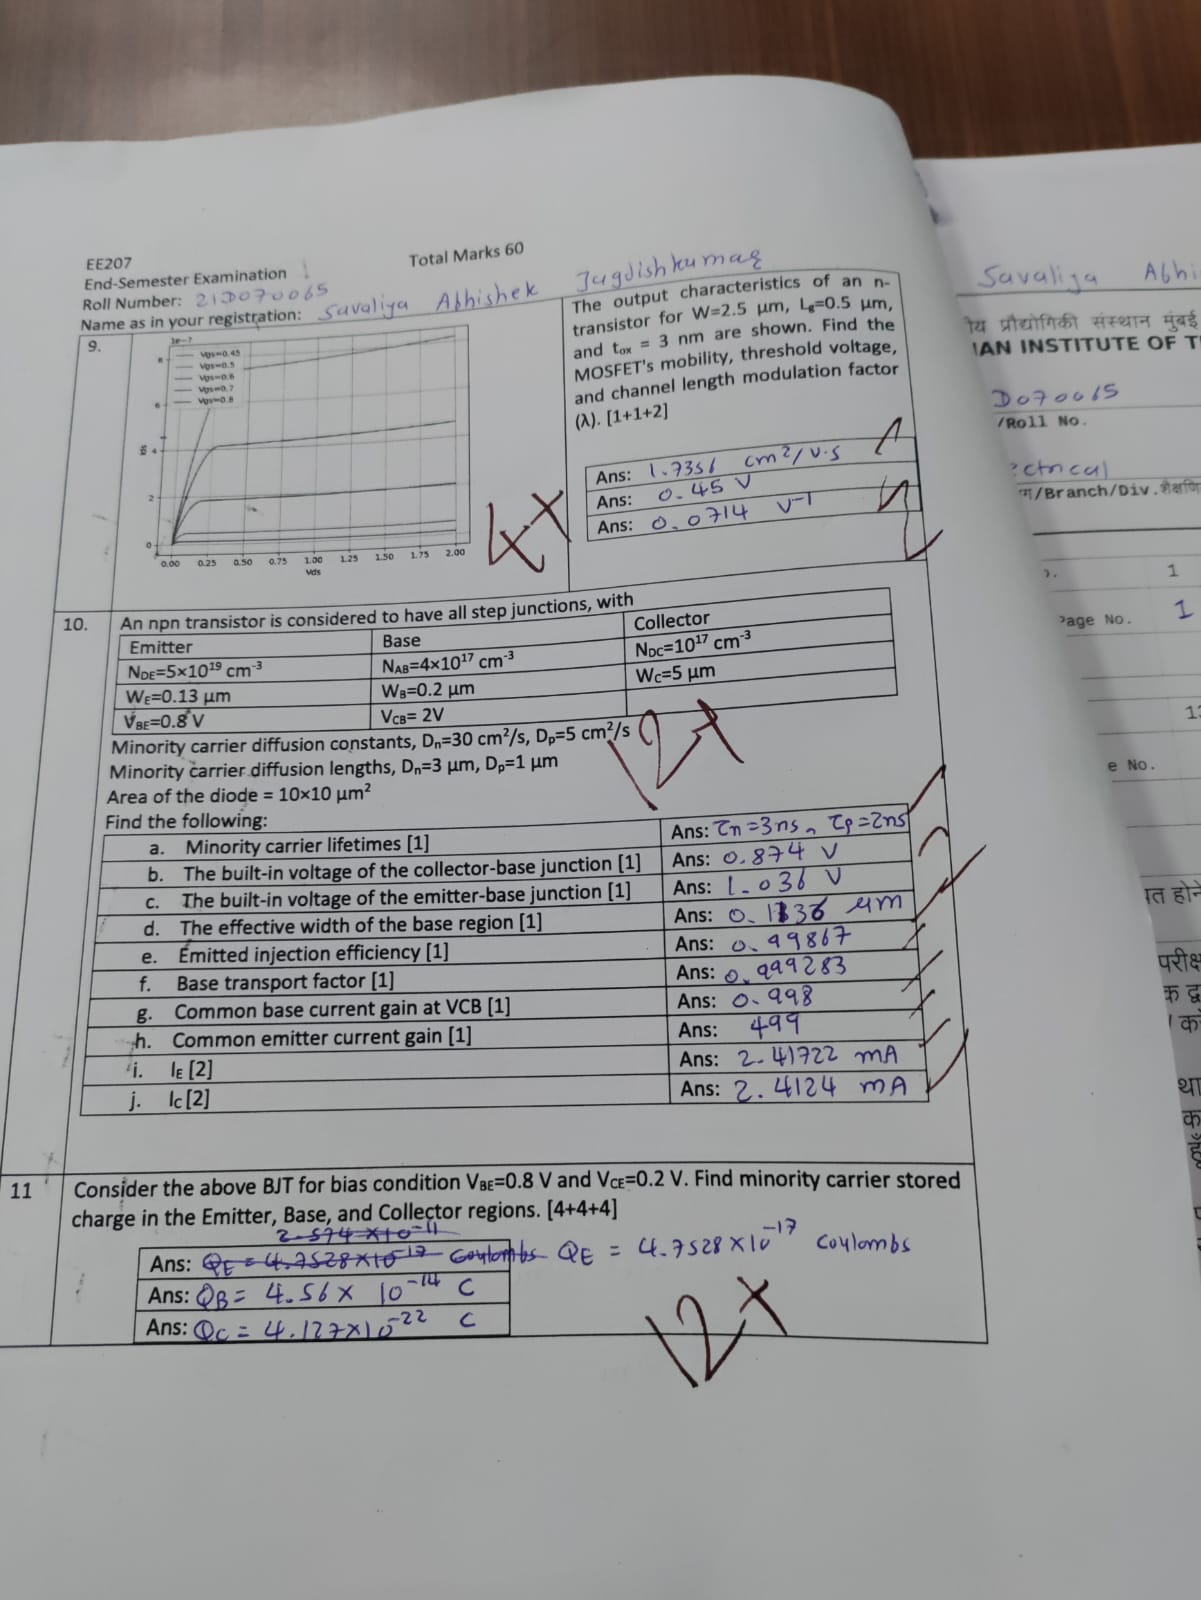 EE207
Total Marks 60
End-Semester Examination
Roll Number: 21D070065
Name as in your registration: Savaliya Abhishek Jagdishkumar
9.
1e-7
Vgs=0.45
Vgs=0.5
Vgs=0.6
Vgs=0.7
Vgs=0.8
8
6
4
2
0
0.00 0.25 0.50 0.75 1.00 1.25 1.50 1.75 2.00
Vds
The output characteristics of an n-
transistor for W=2.5 μm, Lg=0.5 μm,
and tox = 3 nm are shown. Find the
MOSFET's mobility, threshold voltage,
and channel length modulation factor
(λ). [1+1+2]
Ans: 1.7356 cm²/V.S
Ans: 0.45 V
Ans: 0.0714 V-1
4
10. An npn transistor is considered to have all step junctions, with
Emitter Base Collector
NDE=5×10¹⁹ cm⁻³ NAB=4×10¹⁷ cm⁻³ NDC=10¹⁷ cm⁻³
WE=0.13 μm WB=0.2 μm WC=5 μm
VBE=0.8 V VCB= 2V
Minority carrier diffusion constants, Dn=30 cm²/s, Dp=5 cm²/s
Minority carrier diffusion lengths, Dn=3 μm, Dp=1 μm
Area of the diode = 10×10 μm²
12
Find the following:
a. Minority carrier lifetimes [1] Ans: τn=3ns, τp=2ns
b. The built-in voltage of the collector-base junction [1] Ans: 0.874 V
c. The built-in voltage of the emitter-base junction [1] Ans: 1.036 V
d. The effective width of the base region [1] Ans: 0.1136 μm
e. Emitted injection efficiency [1] Ans: 0.99867
f. Base transport factor [1] Ans: 0.999283
g. Common base current gain at VCB [1] Ans: 0.998
h. Common emitter current gain [1] Ans: 499
i. IE [2] Ans: 2.41722 mA
j. IC [2] Ans: 2.4124 mA
11 Consider the above BJT for bias condition VBE=0.8 V and VCE=0.2 V. Find minority carrier stored
charge in the Emitter, Base, and Collector regions. [4+4+4]
2.574×10⁻¹¹
Ans: QE = 4.7528×10⁻¹⁷ Coulombs QE = 4.7528×10⁻¹⁷ Coulombs
Ans: QB = 4.56× 10⁻¹⁴ C
Ans: QC = 4.127×10⁻²² C
12
Savaliya Abhi
ीय प्रौद्योगिकी संस्थान मुंबई
IAN INSTITUTE OF T
D070065
/Roll No.
ectrical
/Branch/Div.
1
Page No. 1
e No.